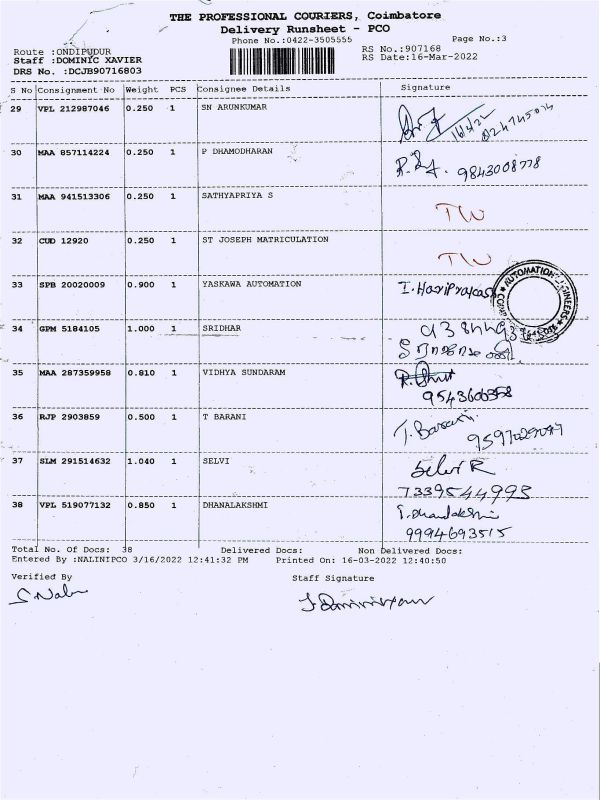 THE PROFESSIONAL COURIERS, Coimbatore
Delivery Runsheet - PCO
Phone No.:0422-3505555 Page No.:3
Route :ONDIPUDUR RS No.:907168
Staff :DOMINIC XAVIER RS Date:16-Mar-2022
DRS No. :DCJB90716803
S No Consignment No Weight PCS Consignee Details Signature
29 VPL 212987046 0.250 1 SN ARUNKUMAR
30 MAA 857114224 0.250 1 P DHAMODHARAN 9843008778
31 MAA 941513306 0.250 1 SATHYAPRIYA S
32 CUD 12920 0.250 1 ST JOSEPH MATRICULATION
33 SPB 20020009 0.900 1 YASKAWA AUTOMATION I. Hariprakash
34 GPM 5184105 1.000 1 SRIDHAR
35 MAA 287359958 0.810 1 VIDHYA SUNDARAM
36 RJP 2903859 0.500 1 T BARANI T. Barani
37 SLM 291514632 1.040 1 SELVI Selvi R
7339544993
38 VPL 519077132 0.850 1 DHANALAKSHMI
9994693515
Total No. Of Docs: 38 Delivered Docs: Non Delivered Docs:
Entered By :NALINIPCO 3/16/2022 12:41:32 PM Printed On: 16-03-2022 12:40:50
Verified By Staff Signature